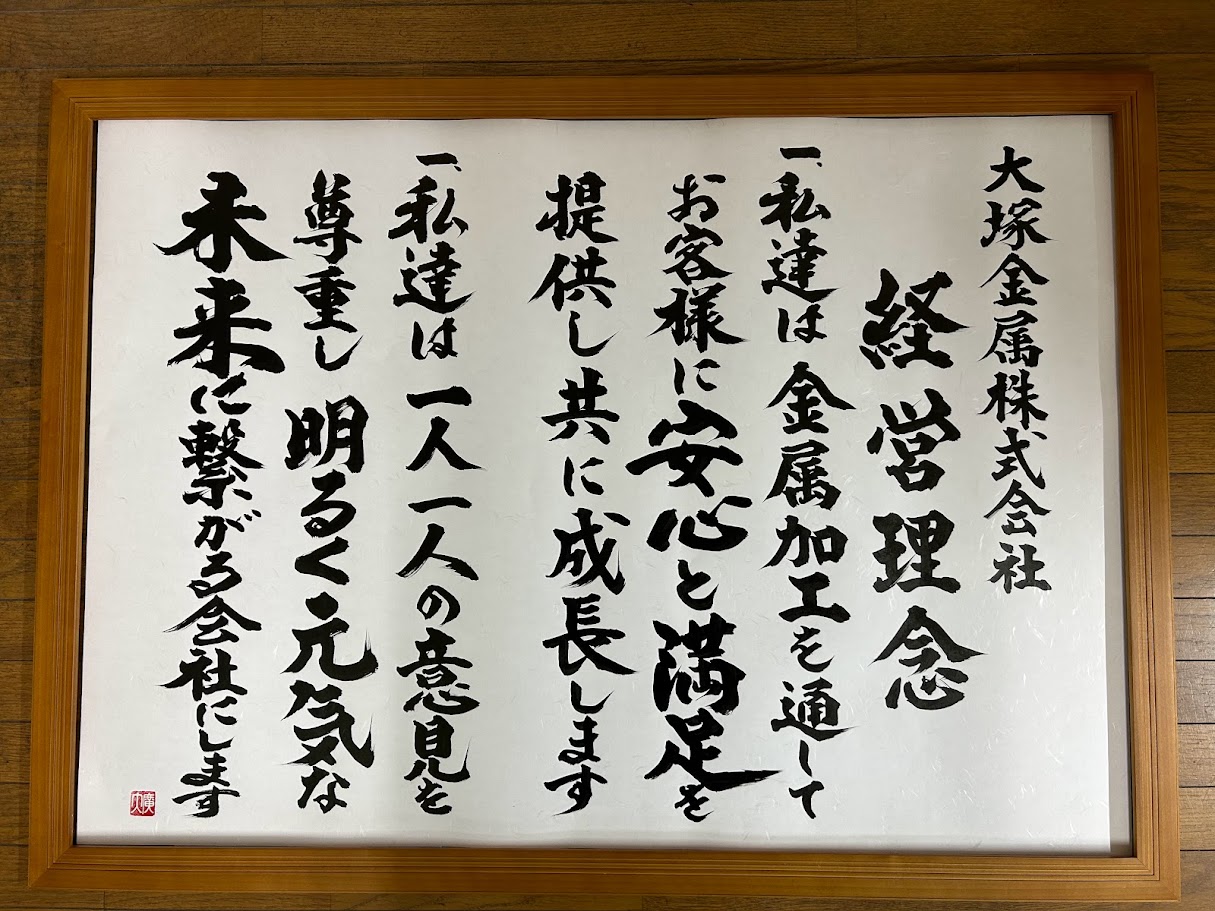 大塚金属株式会社
経営理念
一、私達は金属加工を通して
お客様に安心と満足を
提供し共に成長します
一、私達は一人一人の意見を
尊重し明るく元気な
未来に繋がる会社にします